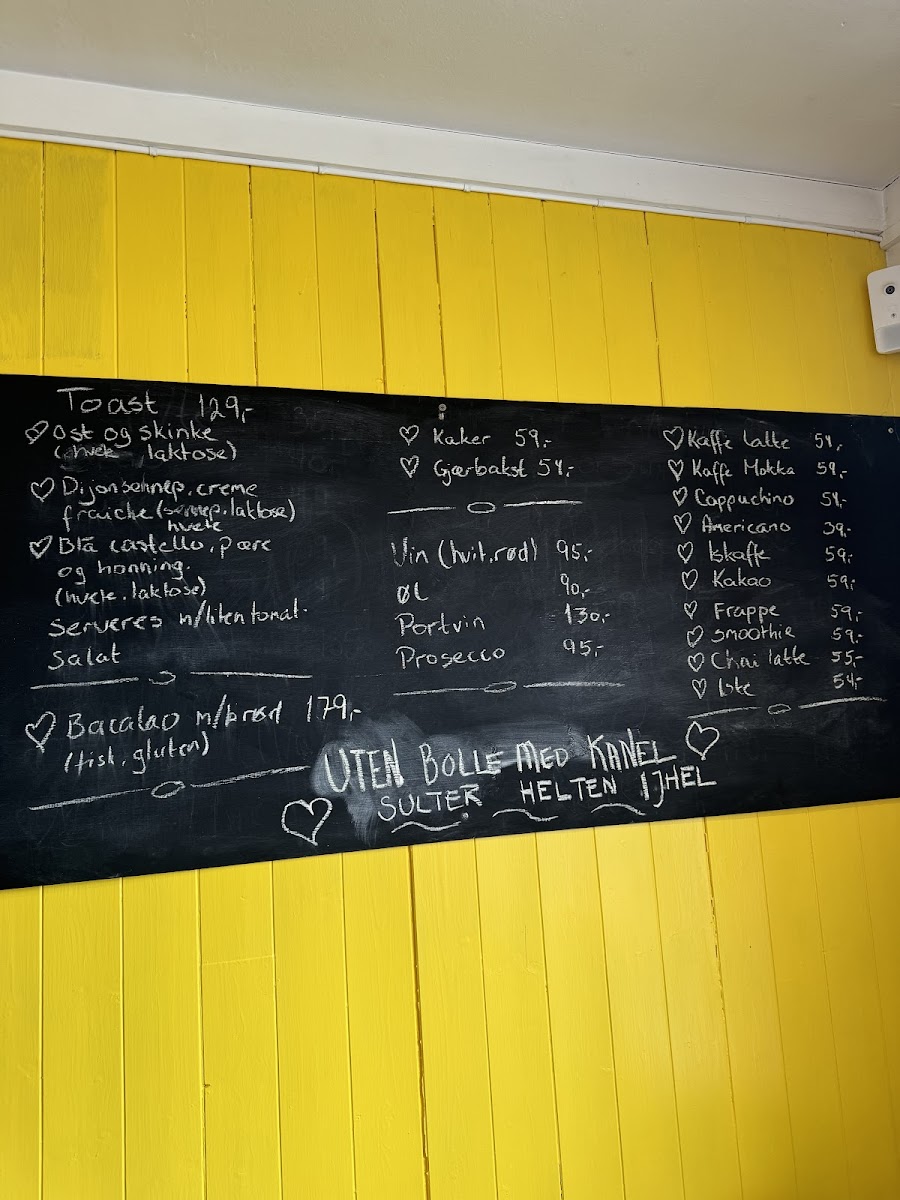 Toast 129,-
Ost og skinke
(hvete laktose)
Dijonsennep, creme
fraiche (sennep, laktose)
hvete
Blå castello, pære
og honning.
(hvete, laktose)
Serveres m/liten tomat
Salat
Bacalao m/brød 179,-
(fisk, gluten)
Kaker 59,-
Gjærbakst 54,-
Vin (hvit, rød) 95,-
ØL 90,-
Portvin 130,-
Prosecco 95,-
Kaffe latte 54,-
Kaffe Mokka 59,-
Cappuchino 54,-
Americano 39,-
Iskaffe 59,-
Kakao 59,-
Frappe 59,-
Smoothie 59,-
Chai latte 55,-
Iste 54,-
UTEN BOLLE MED KANEL
SULTER HELTEN IJHEL